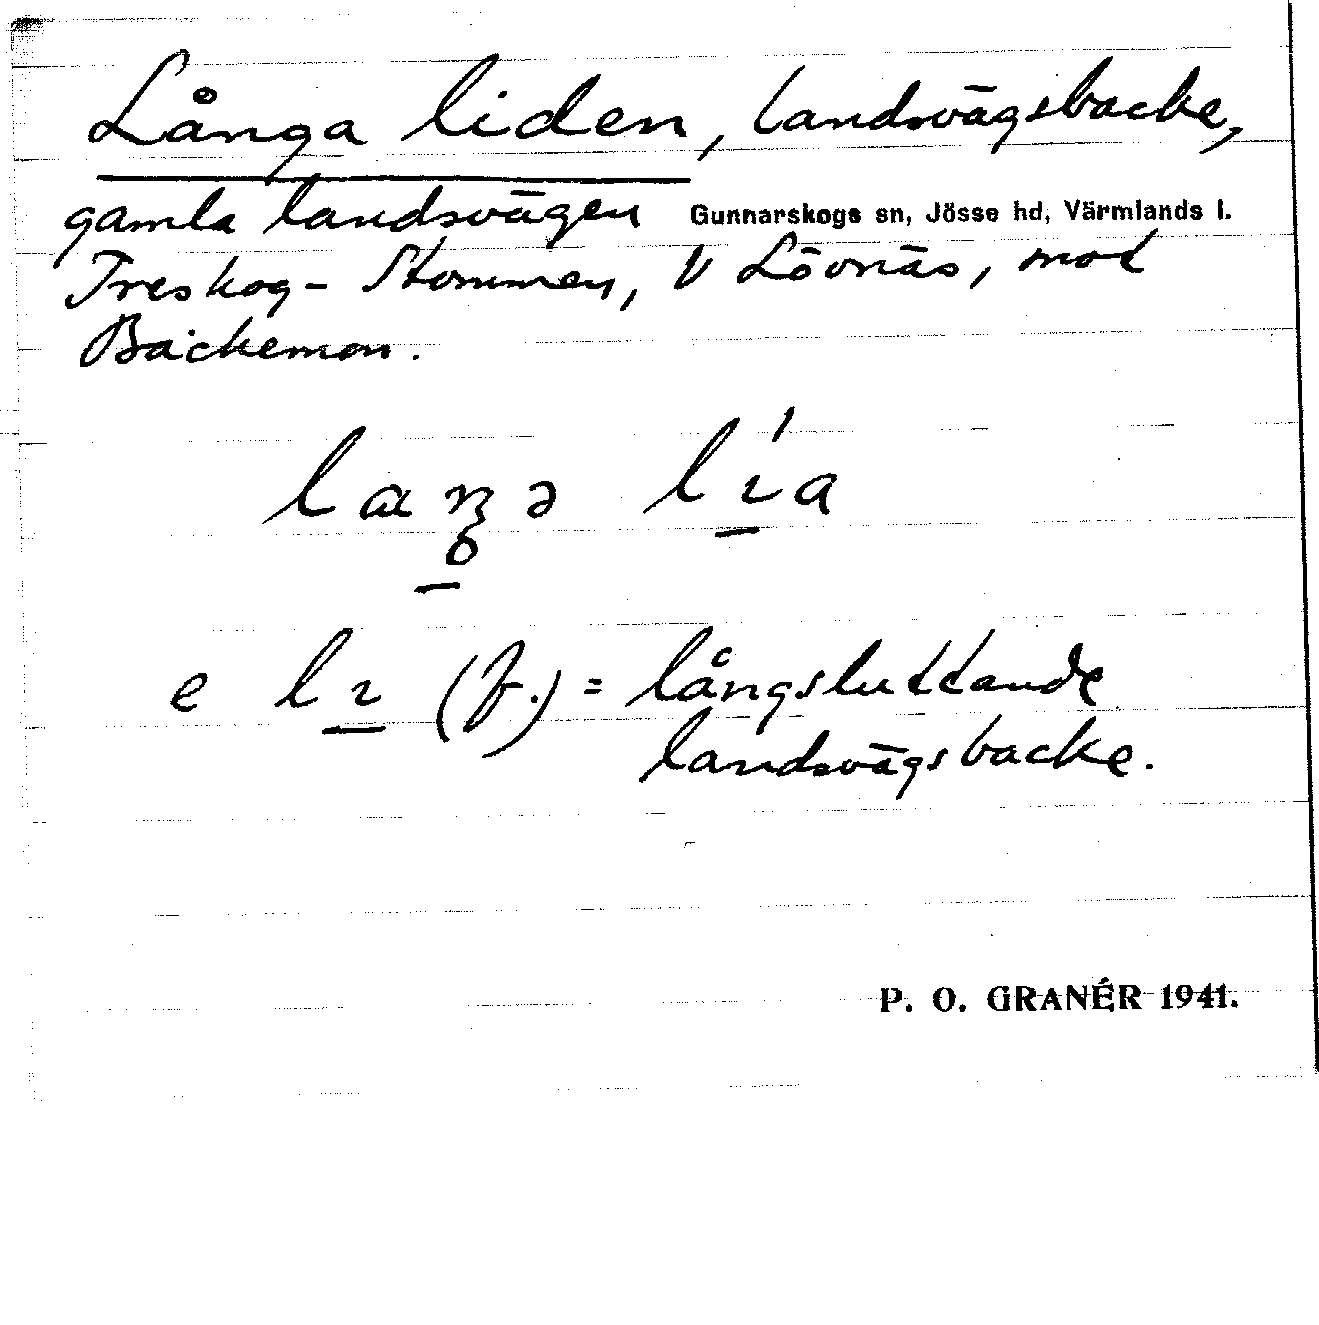 Långa liden, landsvägsbacke,
gamla landsvägen Gunnarskogs sn, Jösse hd, Värmlands l.
Treskog - Stommen, V Lövnäs, mot
Bäckemon.
laŋə lıa
e lı (f.) = långsluttande
landsvägsbacke.
P. O. GRANÉR 1941.